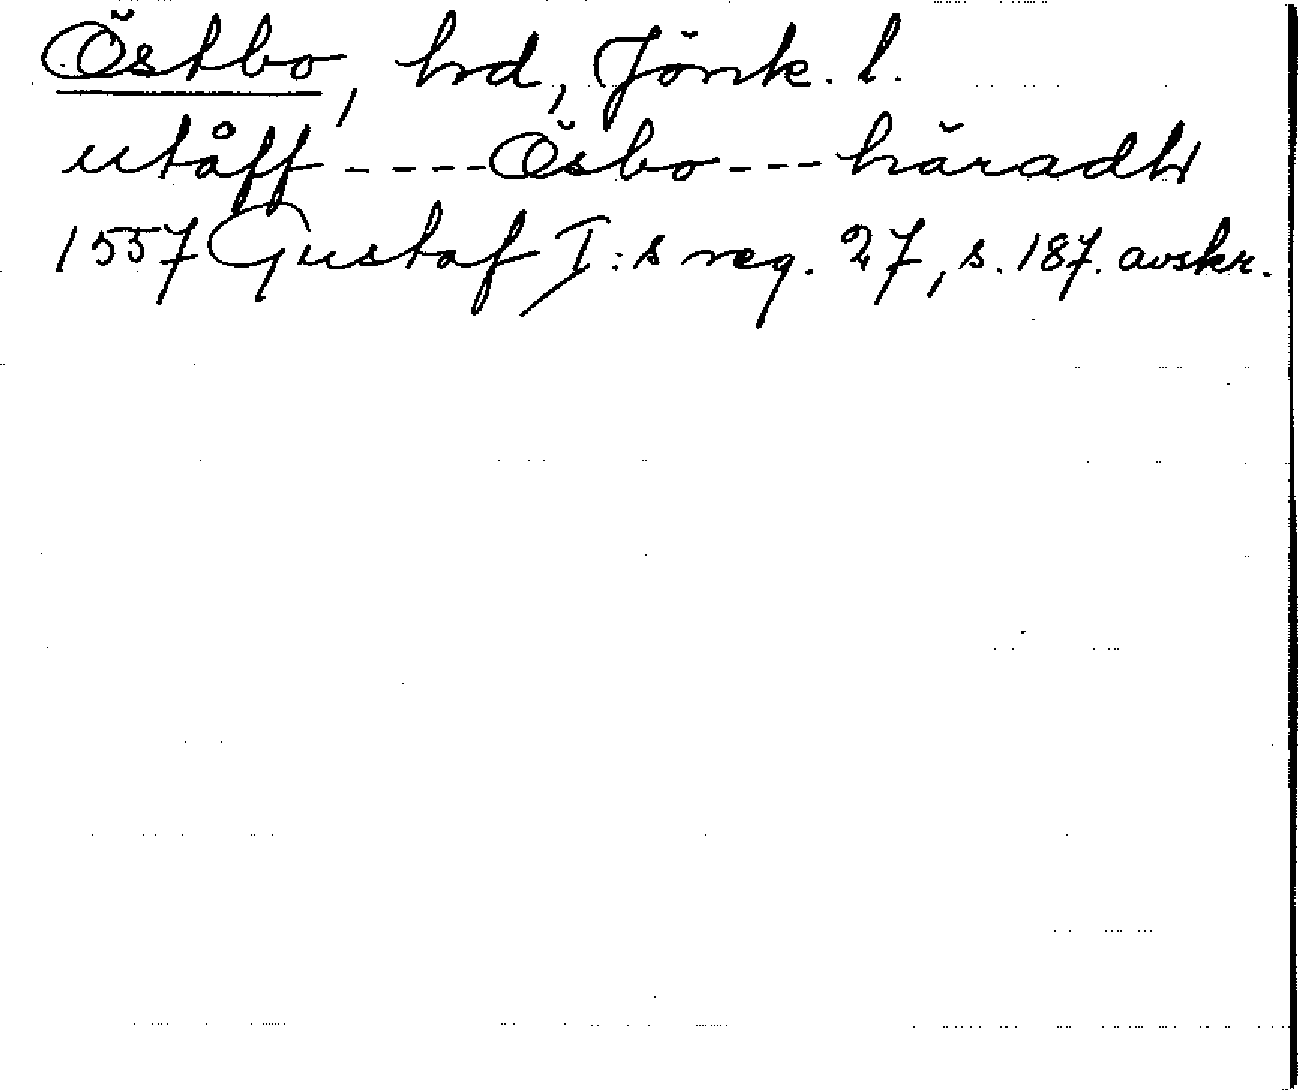 Östbo, hrd, Jönk. l.
utåff ---- Ösbo --- häradh
1557 Gustaf I:s reg. 27, s. 187. avskr.